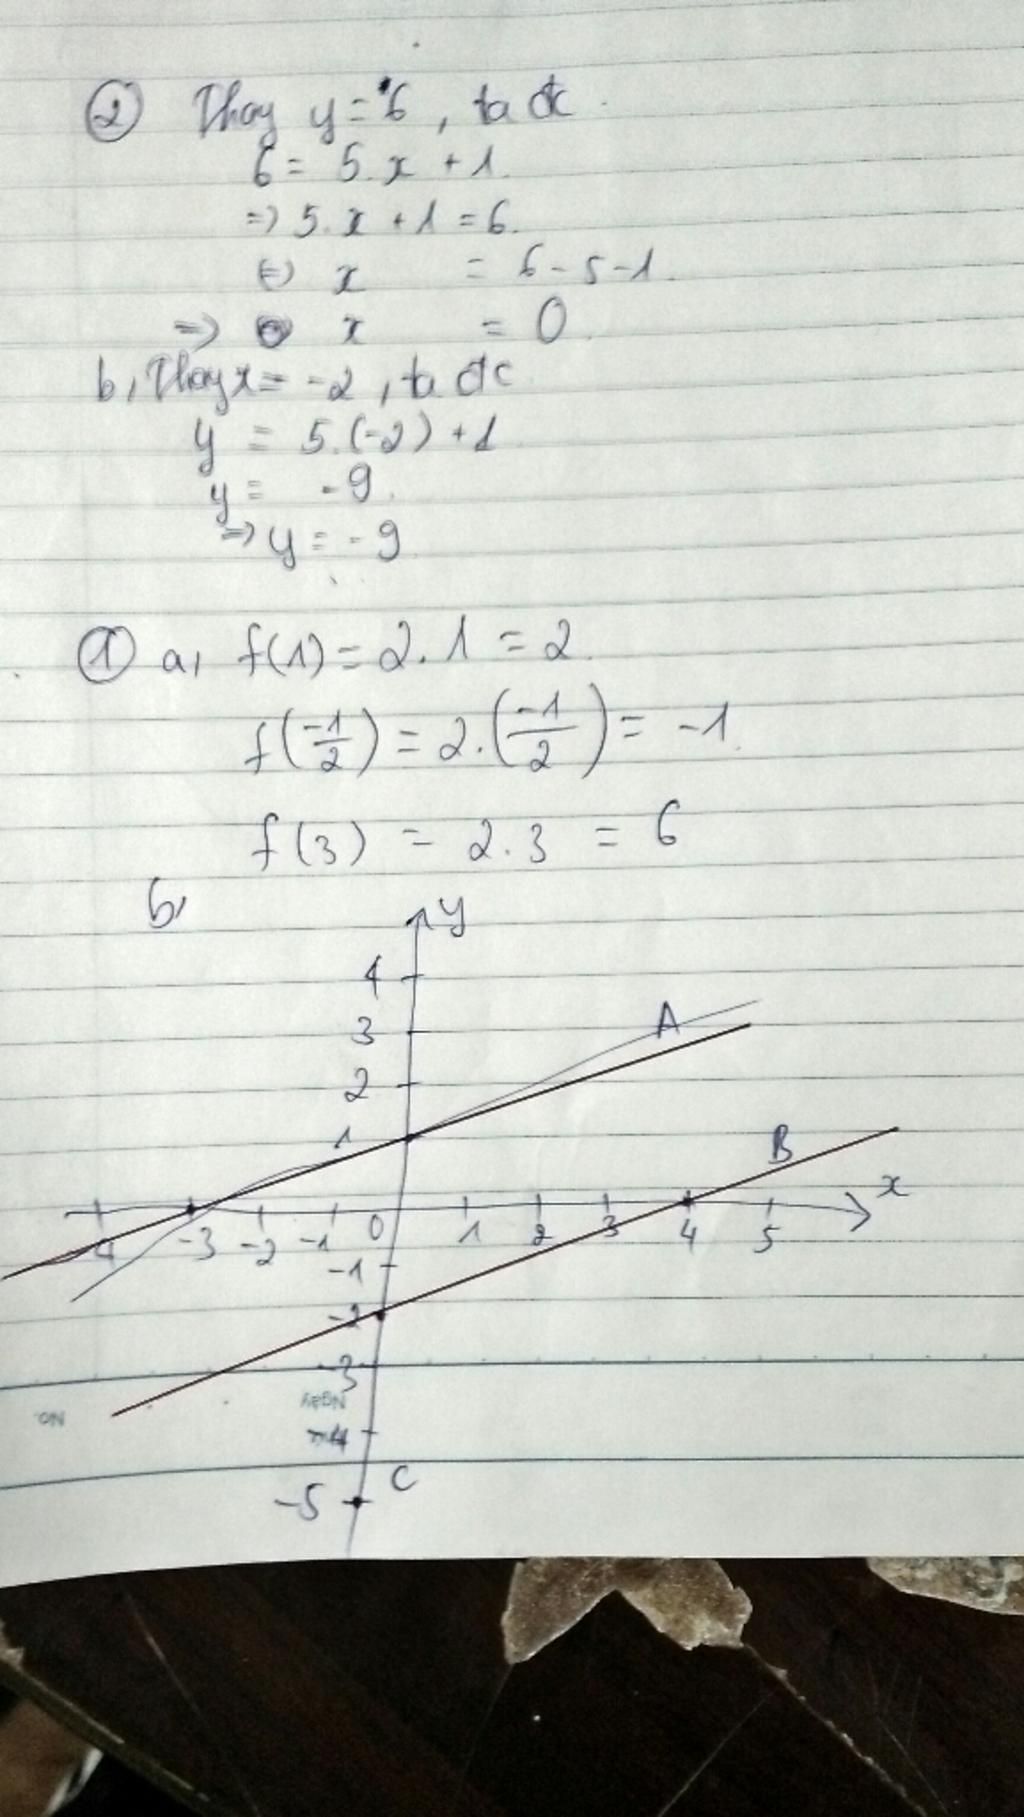 ② Thay y = 6, ta đc
6 = 5.x + 1
=> 5.x + 1 = 6.
<=> x = 6 - 5 - 1
=> x = 0
b, Thay x = -2, ta đc
y = 5.(-2) + 1
y = -9.
=> y = -9
① a, f(1) = 2.1 = 2
f(-1/2) = 2.(-1/2) = -1
f(3) = 2.3 = 6
b,
y
4
3 A
2
1
B
x
-4 -3 -2 -1 0 1 2 3 4 5
-1
-2
-3
Ngày
No.
-4
C
-5